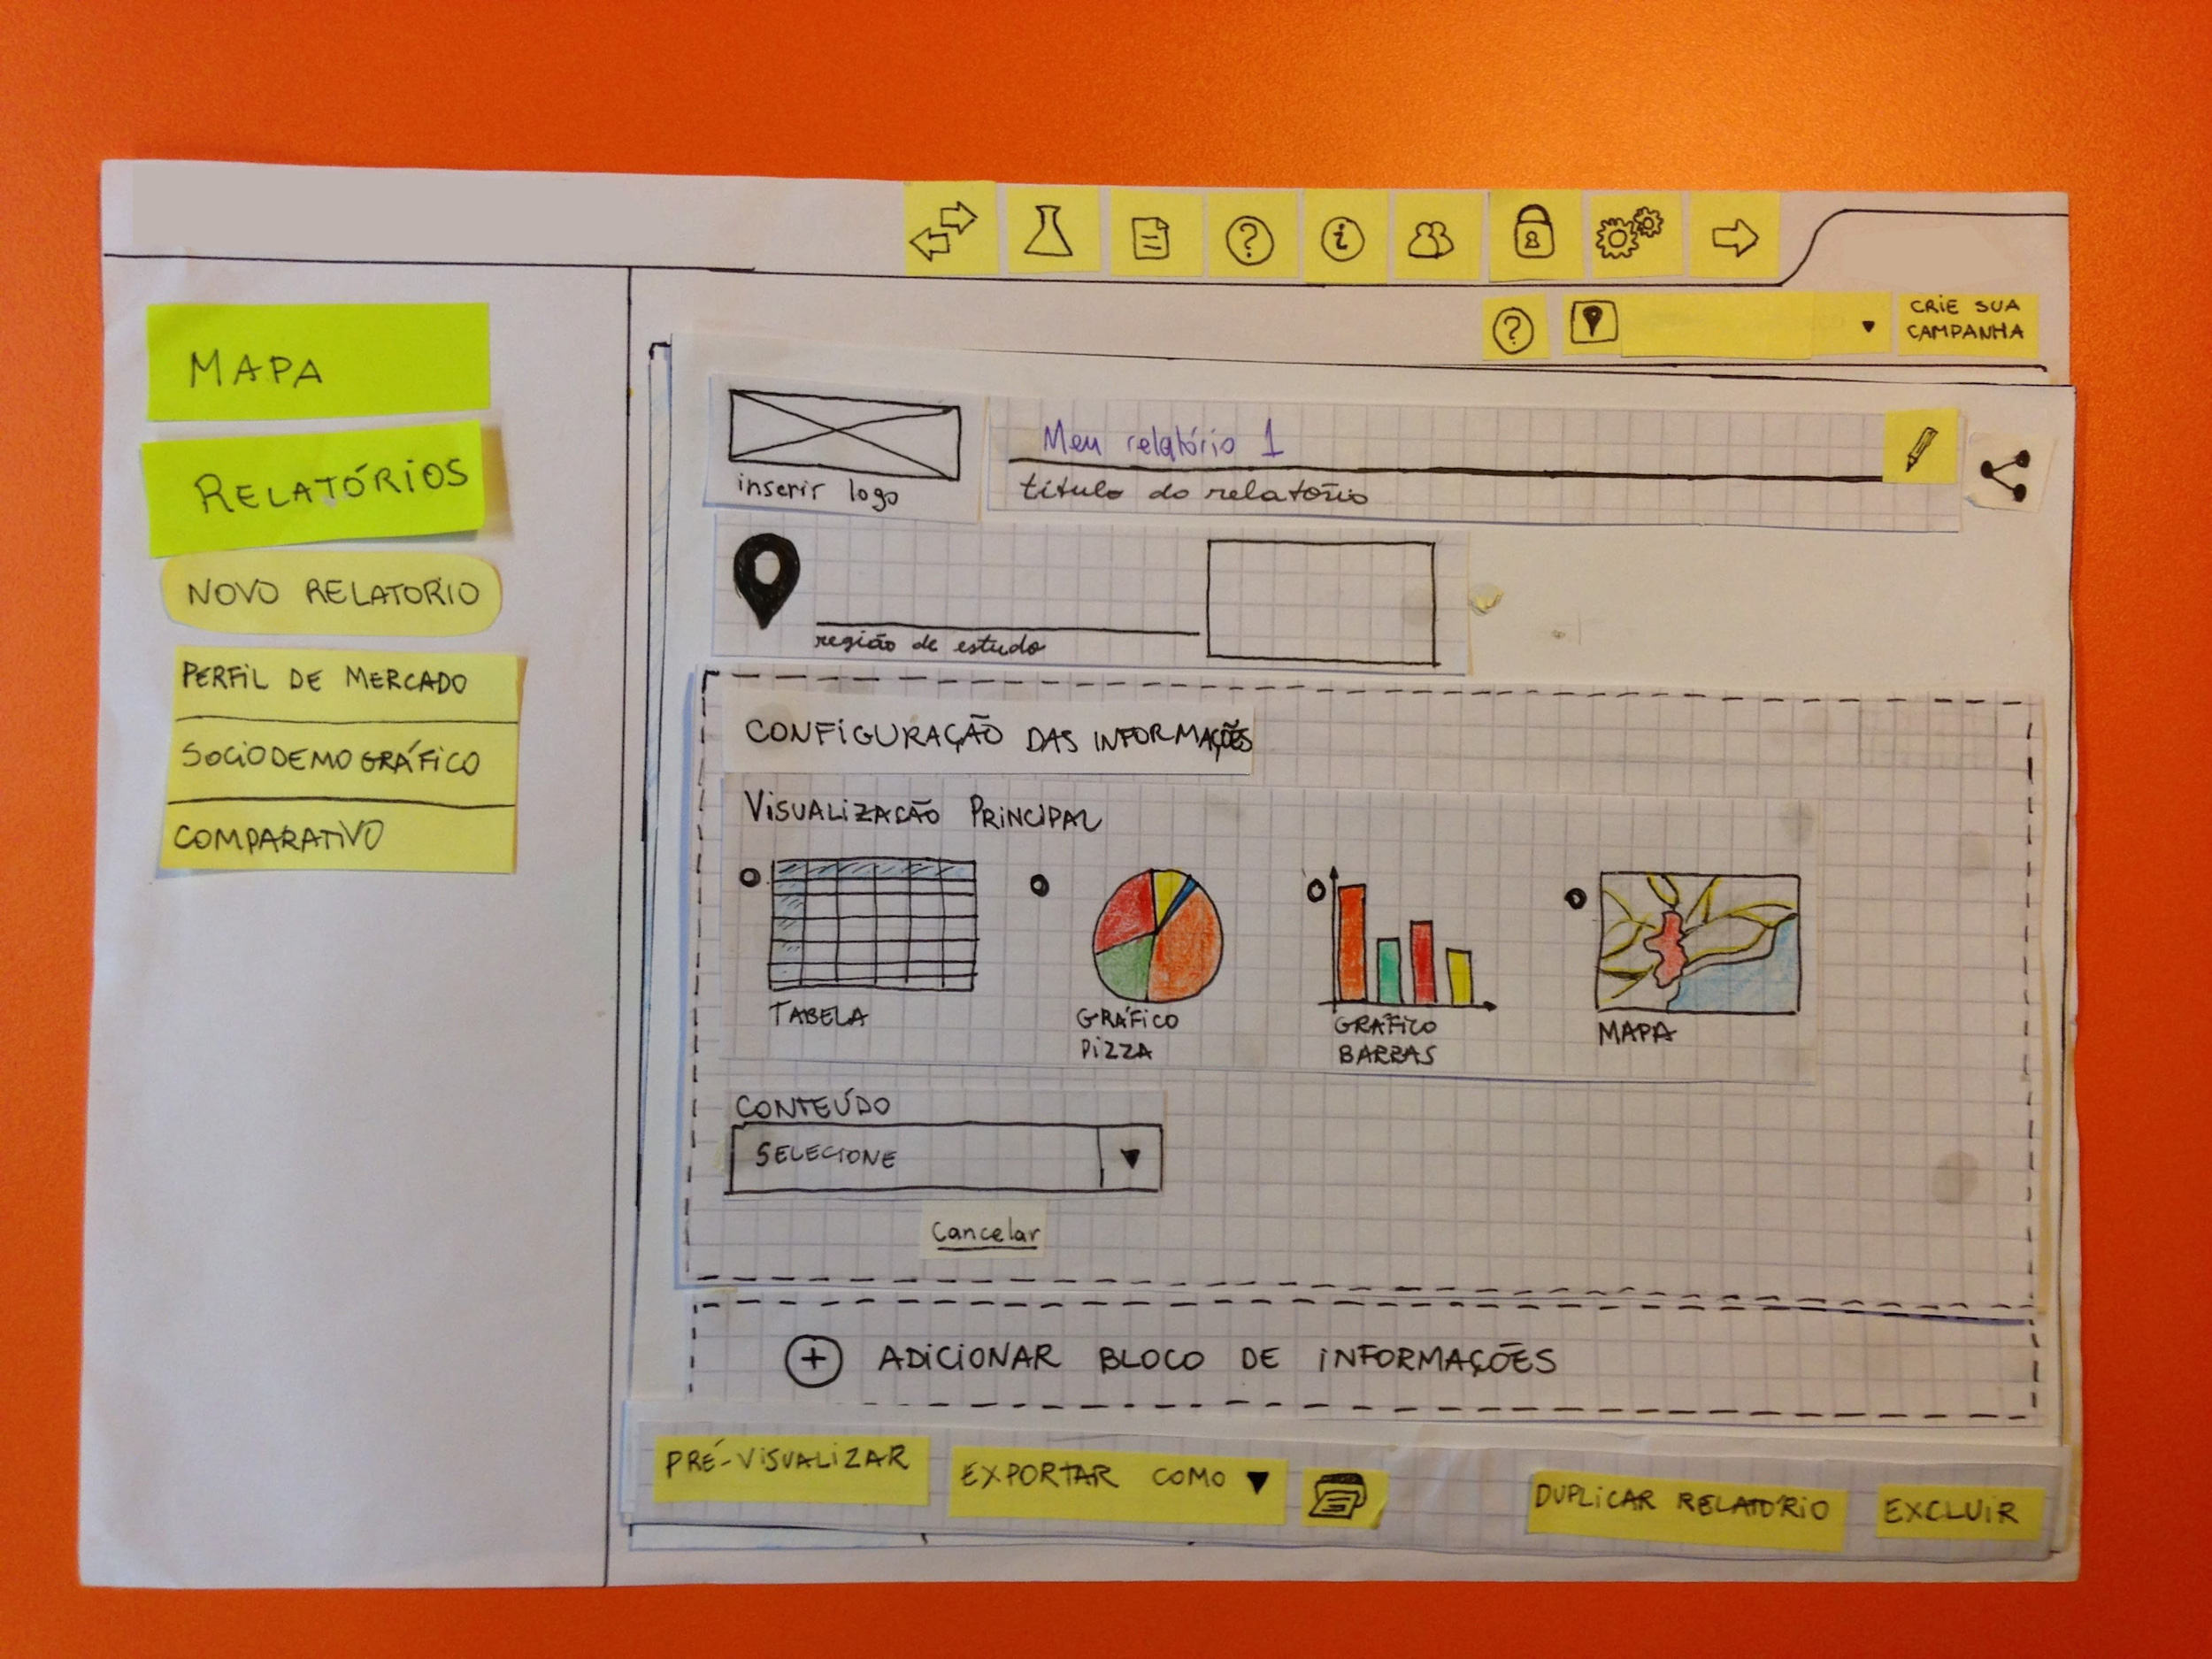 CRIE SUA
CAMPANHA
MAPA
RELATÓRIOS
NOVO RELATORIO
PERFIL DE MERCADO
SOCIODEMOGRÁFICO
COMPARATIVO
Meu relatório 1
inserir logo
título do relatório
região de estudo
CONFIGURAÇÃO DAS INFORMAÇÕES
VISUALIZAÇÃO PRINCIPAL
TABELA
GRÁFICO
PIZZA
GRÁFICO
BARRAS
MAPA
CONTEÚDO
SELECIONE
Cancelar
+ ADICIONAR BLOCO DE INFORMAÇÕES
PRÉ-VISUALIZAR
EXPORTAR COMO
DUPLICAR RELATÓRIO
EXCLUIR